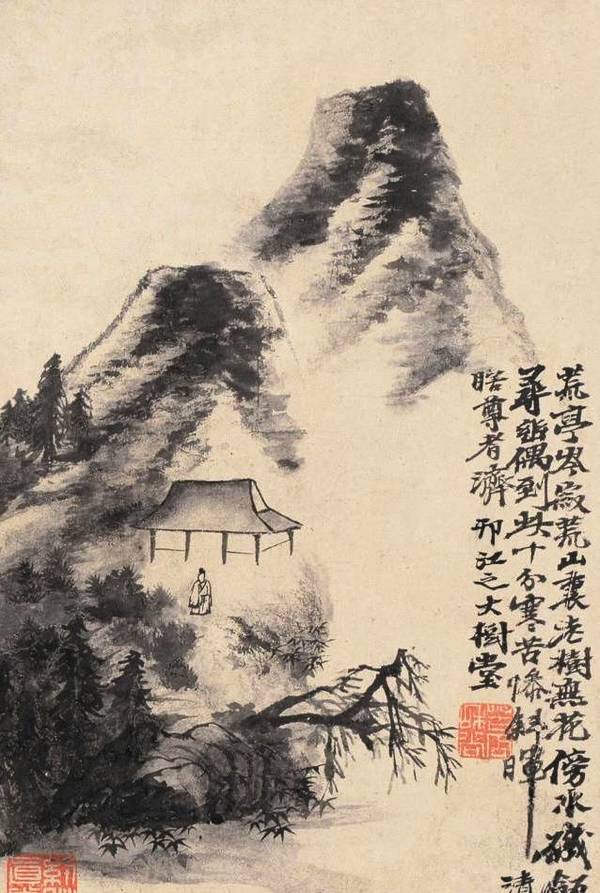 荒亭岑寂荒山裏老樹無花傍水磯
尋詩偶到此十分寒苦慘斜暉 清
瞎尊者濟 邗江之大樹堂